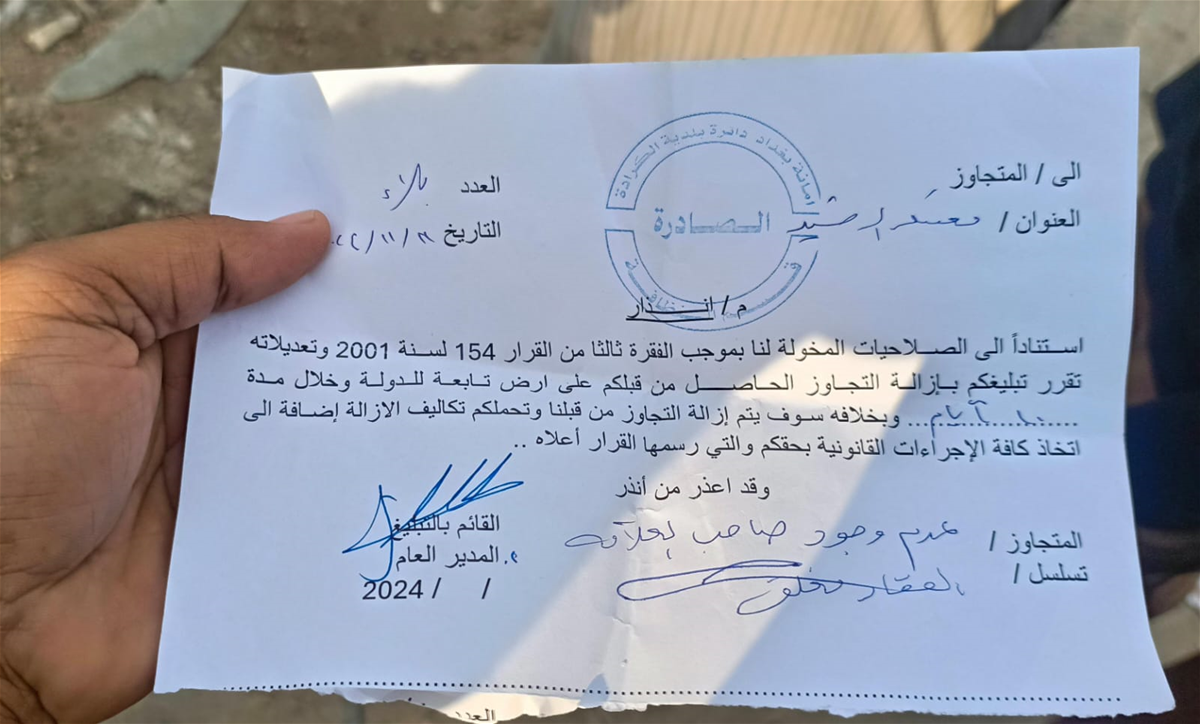 امانة بغداد دائرة بلدية الكرادة
الصادرة
الى / المتجاوز
العنوان / معسكر الرشيد
العدد
التاريخ
م / انـــذار
استناداً الى الصلاحيات المخولة لنا بموجب الفقرة ثالثا من القرار 154 لسنة 2001 وتعديلاته
تقرر تبليغكم بإزالة التجاوز الحاصل من قبلكم على ارض تابعة للدولة وخلال مدة
أيام... وبخلافه سوف يتم إزالة التجاوز من قبلنا وتحملكم تكاليف الازالة إضافة الى
اتخاذ كافة الإجراءات القانونية بحقكم والتي رسمها القرار أعلاه ..
وقد اعذر من أنذر
المتجاوز / عدم وجود صاحب العلاقة
تسلسل / العقار مغلق
القائم بالتبليغ
م. المدير العام
/ / 2024
العدد